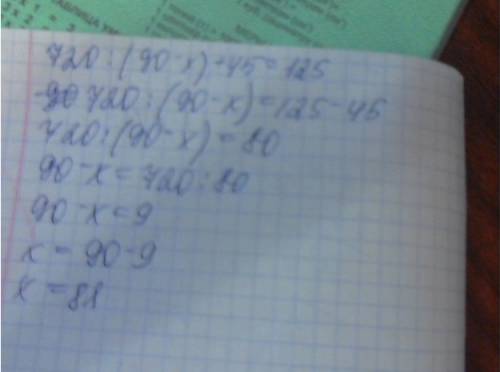 ТАБЛИЦА
720:(90-x)+45=125
720:(90-x)=125-45
720:(90-x)=80
90-x=720:80
90-x=9
x=90-9
x=81